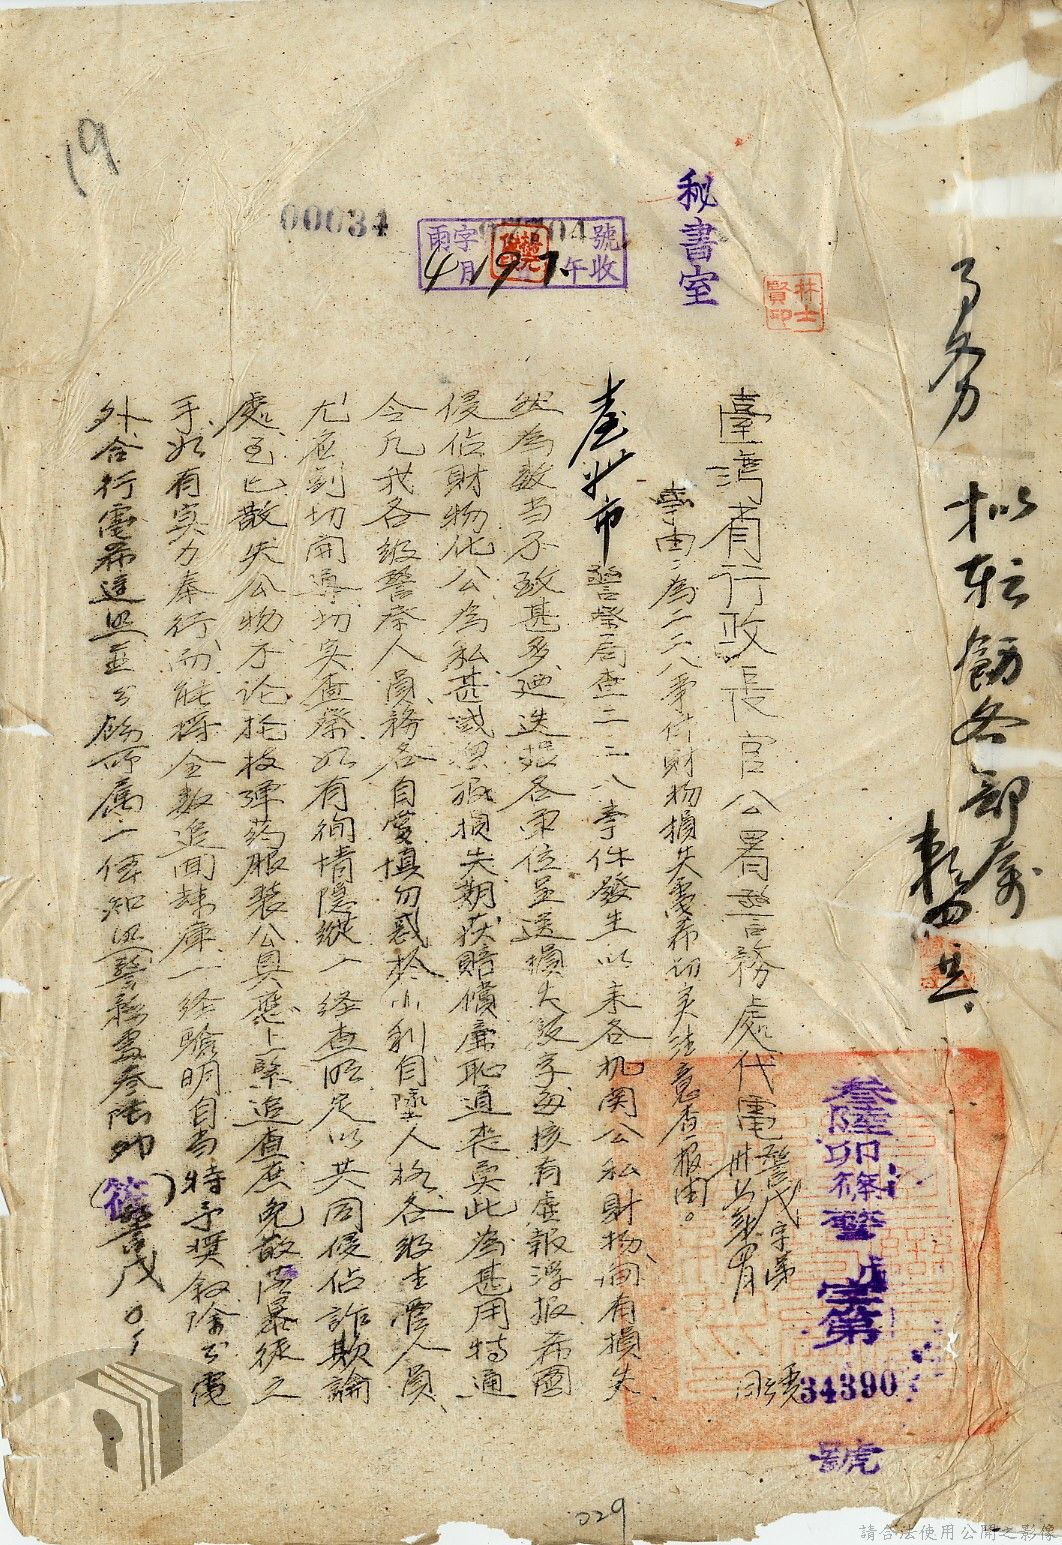 19
00034
秘書室
雨字 號
4月19 午收
林士賢印
了 拟転飭各部
臺灣省行政長官公署警務處代電 警戊字第 號
卅六年 月 日
事由:為二二八事件財物損失電希切实注意查报由。
臺北市警察局查二二八事件發生以来各机関公私財物间有損失
然為數当不致甚多廼迭据各单位呈送損失数字每核有虛報浮报希圖
侵佔財物化公為私甚或浥报損失期获賠償廉恥道丧莫此為甚用特通
令凡我各级警察人員務各自愛慎勿惑於小利自墜人格各级主管人員
尤应剴切開導切实查察如有徇情隐縱一经查明定以共同侵佔詐欺論
處至已散失公物不论枪枝弹药服裝公具应上緊追查庶免散落暴徒之
手如有实力奉行而能将全数追回隸庫一经驗明自当特予奬叙除分電
外合行電希遵照並分飭所属一体知照警務處叁陆卯(篠)警戊。
叁陸卯篠警戊字第
34390
號
029
請合法使用公開之影像